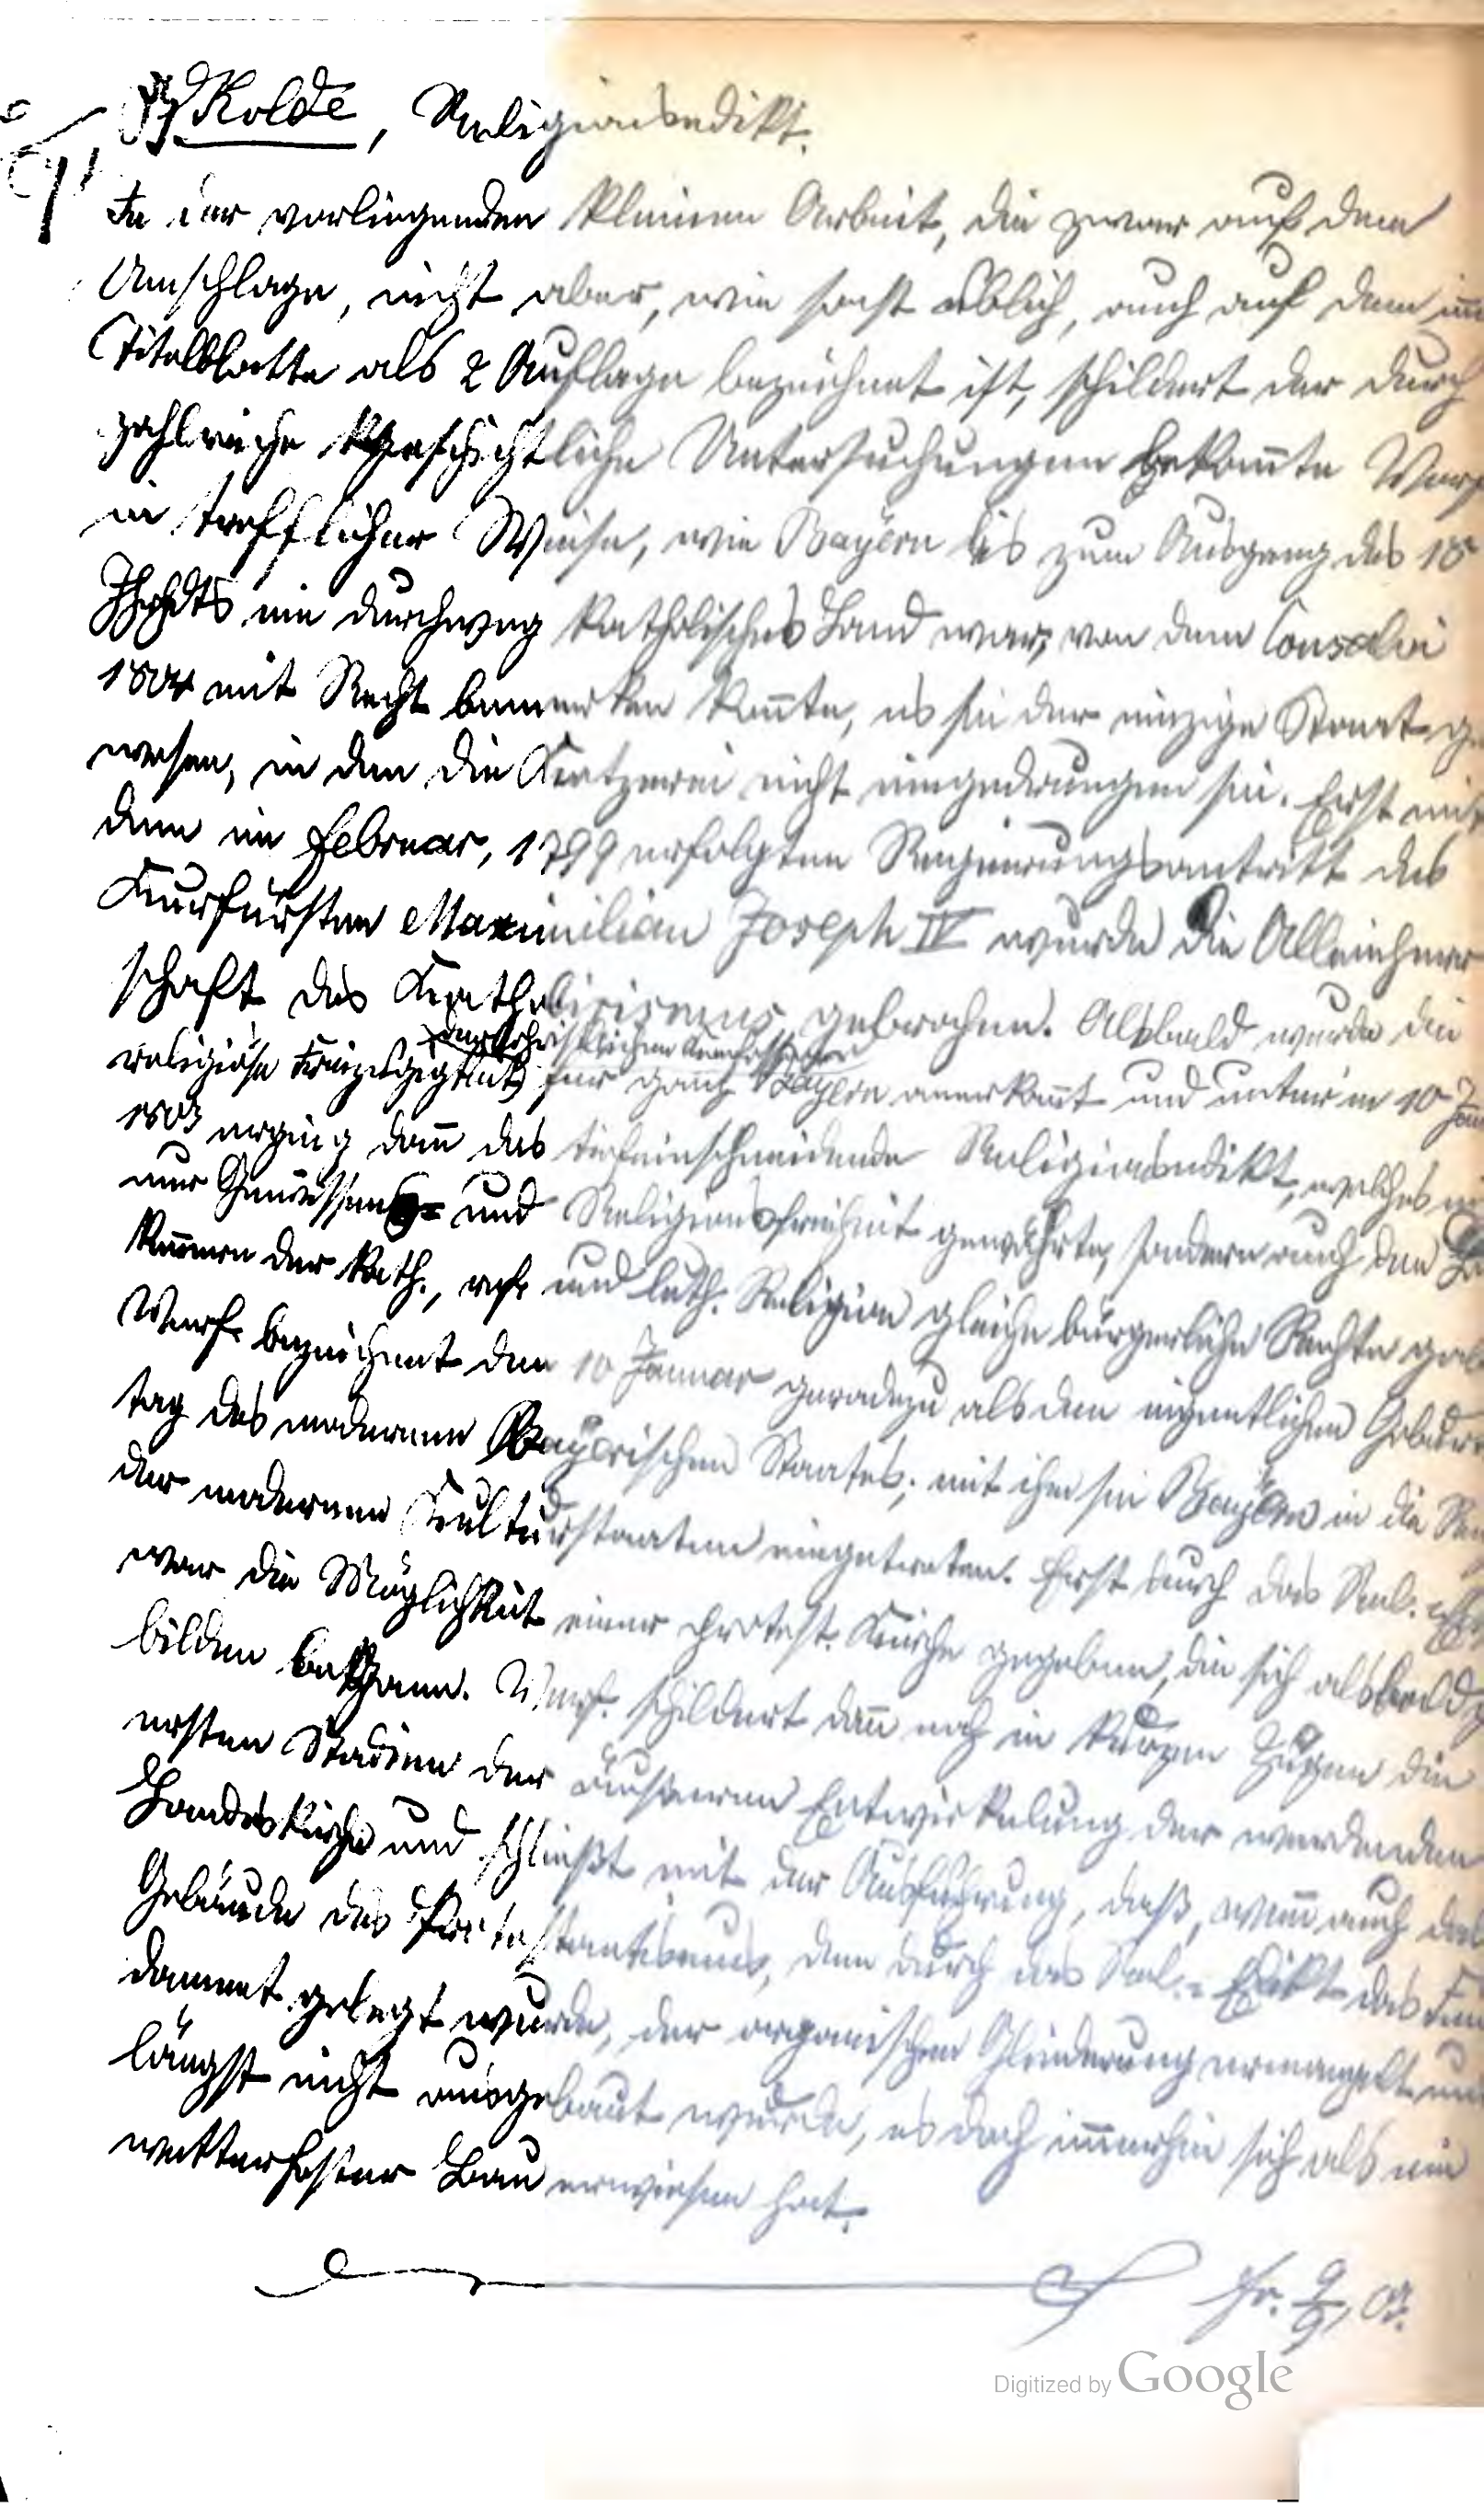 Kolde, Religionsedikt.
In der vorliegenden kleinen Arbeit, die zwar auf dem
Umschlage, nicht aber, wie sonst üblich, auch auf dem
Titelblatte als 2 Auflage bezeichnet ist, schildert der durch
zahlreiche geschichtliche Untersuchungen bekannte Verf
in trefflicher Weise, wie Bayern bis zum Ausgang des 18
Jhhdts ein durchweg katholisches Land war, von dem Consalvi
1804 mit Recht bemerken konnte, es sei der einzige Staat ge
wesen, in den die Ketzerei nicht eingedrungen sei. Erst mit
dem im Februar, 1799 erfolgten Regierungsantritt des
Kurfürsten Maximilian Joseph IV wurde die Alleinherr
schaft des Katholicismus gebrochen. Alsbald wurde die
der christlichen Confessionen
religiöse Freizügigkeit für ganz Bayern anerkannt und unter'm 10 Jan
1803 erging dann das tiefeinschneidende Religionsedikt, welches
nur Gewissens- und Religionsfreiheit gewährte, sondern auch den
kennern der kath., ref. und luth. Religion gleiche bürgerliche Rechte gab
Verf. bezeichnet den 10 Januar geradezu als den eigentlichen Geburts
tag des modernen Bayerischen Staates; mit ihm sei Bayern in die
der modernen Kulturstaaten eingetreten. Erst durch das Rel.
war die Möglichkeit einer protest. Kirche gegeben, die sich alsbald z
bilden begann. Verf. schildert dann noch in kurzen Zügen die
ersten Stadien der äußeren Entwickelung der werdenden
Landeskirche und schließt mit der Ausführung, daß, wenn auch das
Gebäude des Protestantismus, dem durch das Rel.-Edikt das Fun
dament gelegt wurde, der organischen Gliederung ermangelt und
längst nicht ausgebaut wurde, es doch immerhin sich als ein
wetterfester Bau erwiesen hat.
Digitized by Google